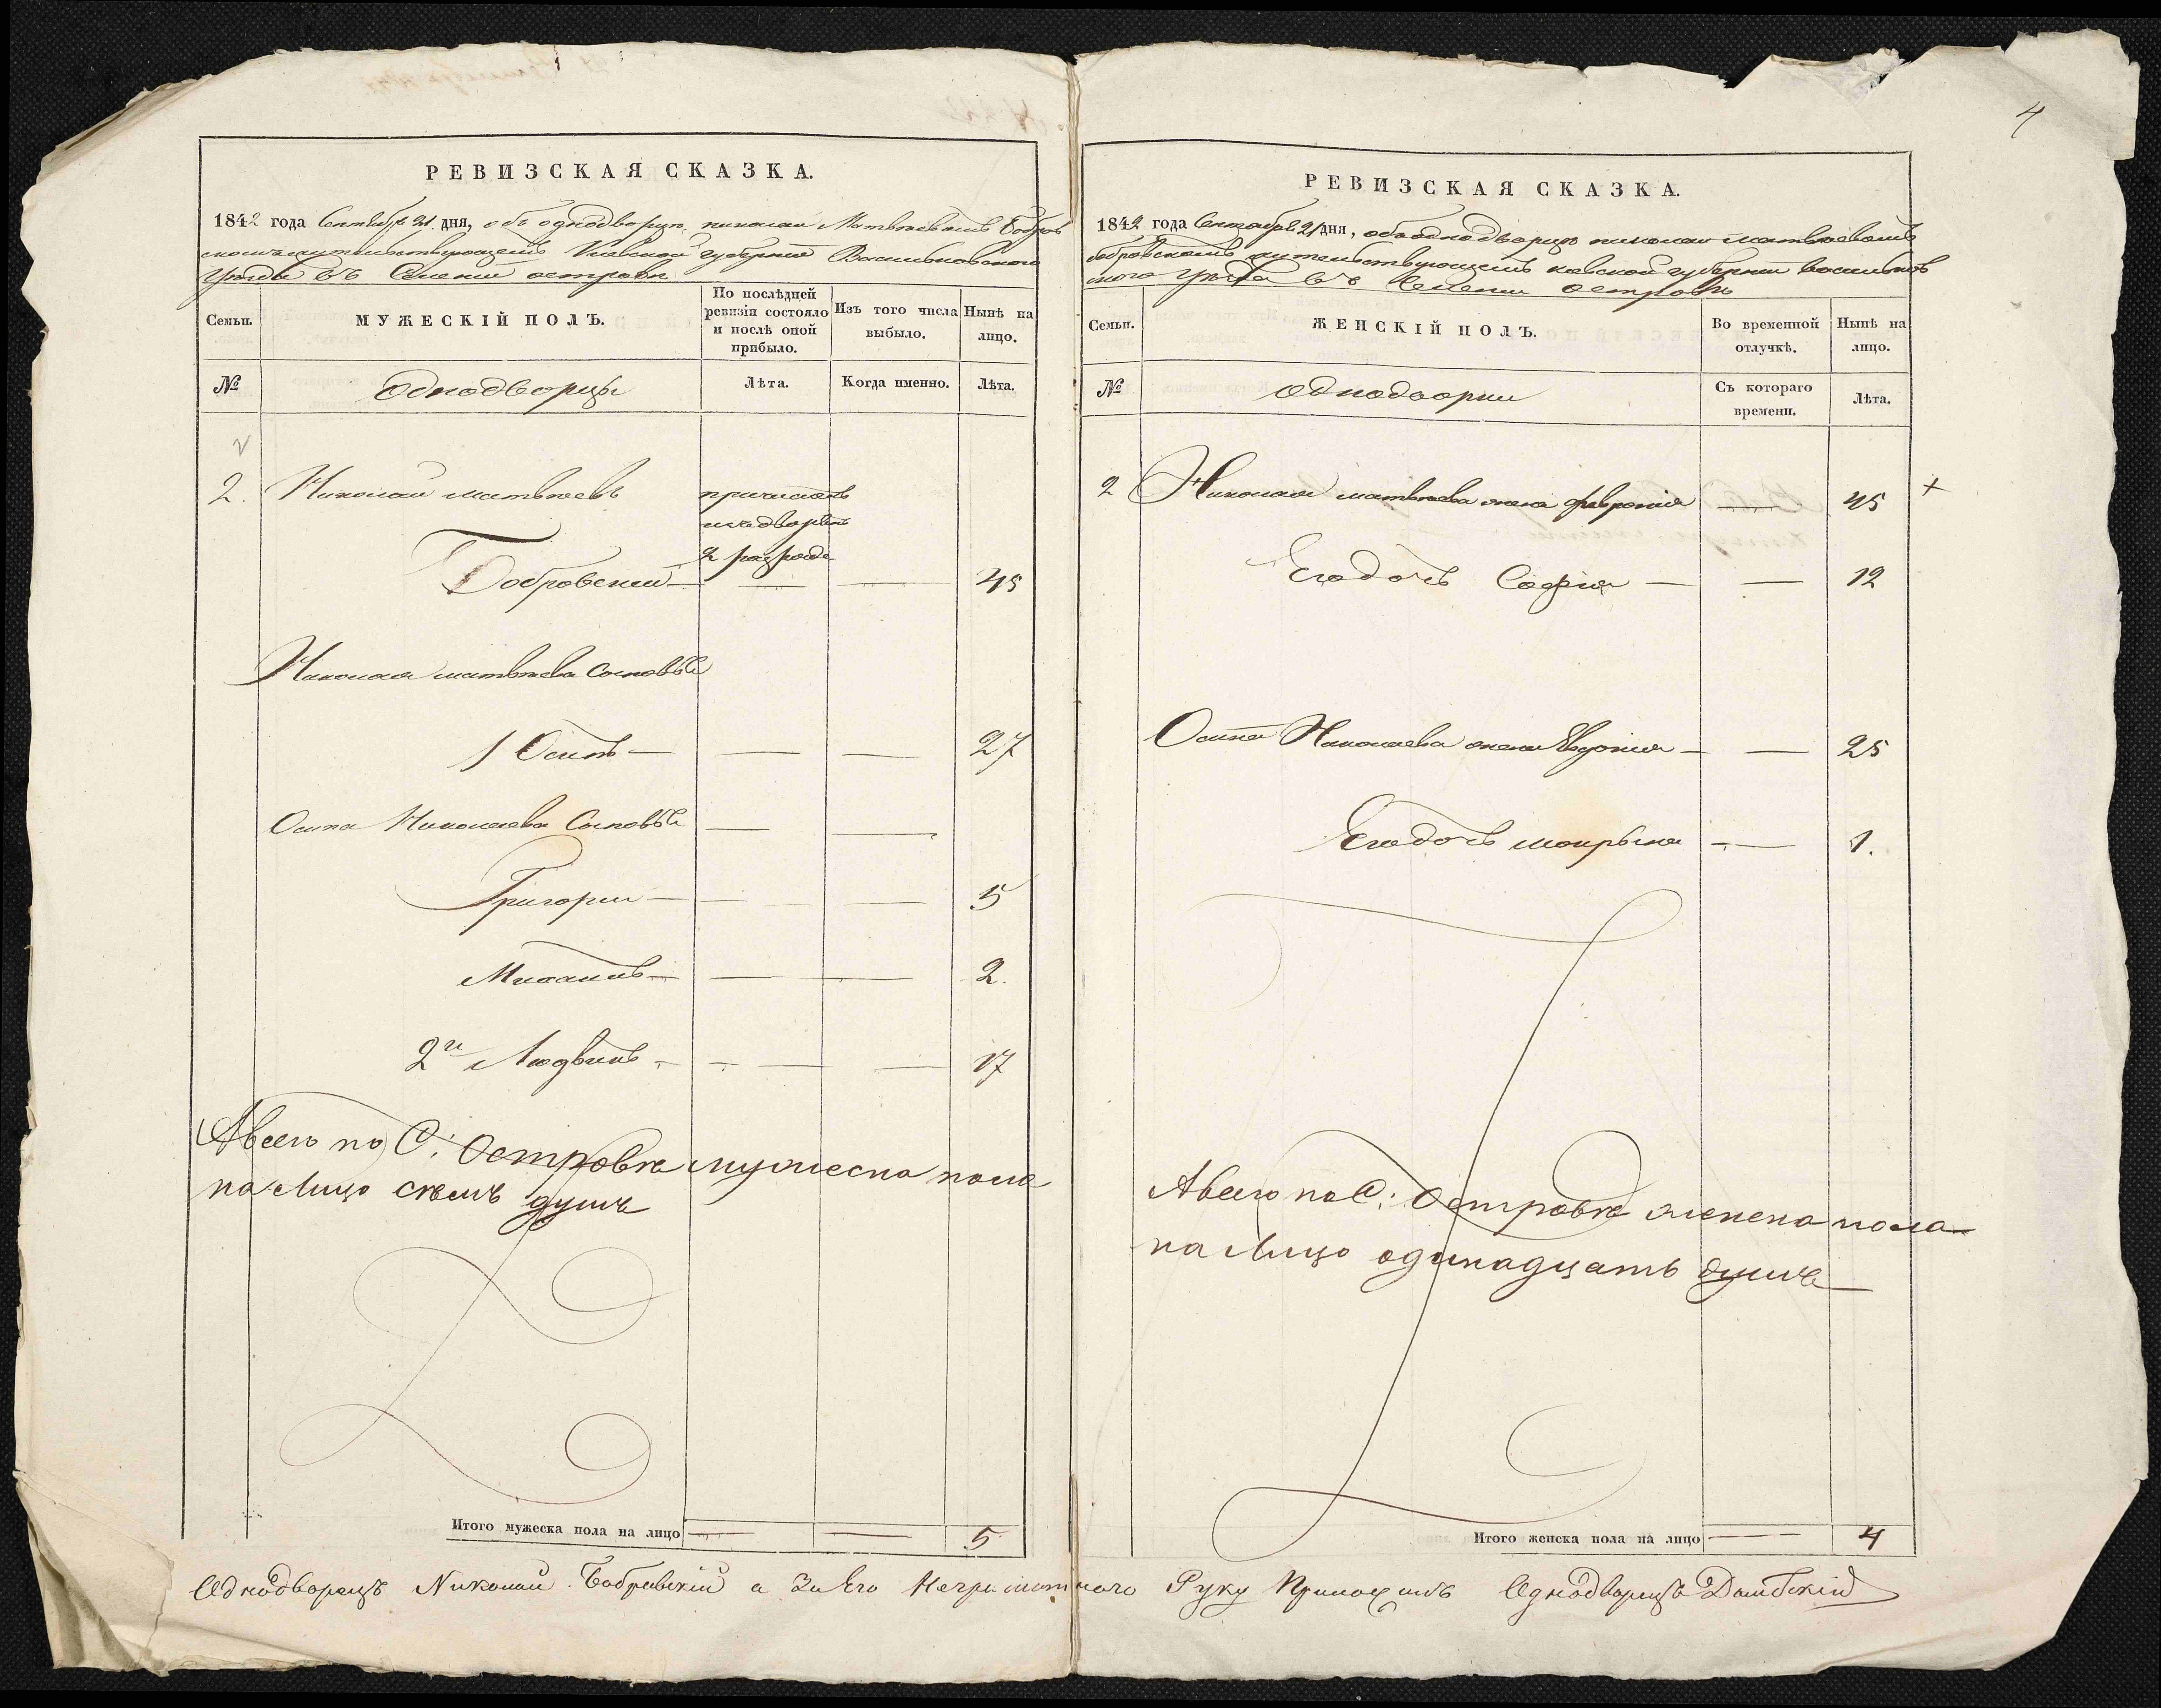 4
РЕВИЗСКАЯ СКАЗКА.
1842 года Сентября 21 дня, объ однодворцѣ николаи Матвѣевомъ Бобров
скомъ жительствующемъ Киевской губернiи Васильковского
уѣзда въ Селенiи островѣ
Семьи.
МУЖЕСКІЙ ПОЛЪ.
По послѣдней
ревизіи состояло
и послѣ оной
прибыло.
Изъ того числа
выбыло.
Нынѣ на
лицо.
№
однодворцы
Лѣта.
Когда именно.
Лѣта.
2. Николай матвѣевъ
2 разряда
Бобровскии — — — 45
Николая матвѣева сыновья
1 Осипъ — — — 27
Осипа Николаева Сыновья — —
Григории — — — 5
Михаилъ — — — 2.
2й Людвикъ — — — 17
А всего по С: Островкѣ мужеска пола
на Лицо семъ душъ
Итого мужеска пола на лицо — — 5
РЕВИЗСКАЯ СКАЗКА.
1842 года Сентября 21 дня, объ однодворцѣ николаи матвѣевомъ
бобровскомъ жительствующемъ киевской губернiи васильков
ского уѣзда въ Селенiи островѣ
Семьи.
ЖЕНСКІЙ ПОЛЪ.
Во временной
отлучкѣ.
Нынѣ на
лицо.
№
однодворки
Съ котораго
времени.
Лѣта.
2 Николая матвѣева жена феврониia — 45 +
Его дочь Софiя — — 12
Осипа Николаева жена Евдокия — — 25
Его дочь мокрына — 1.
А всего по С: Островкѣ женска пола
на Лицо одинадцать душъ
Итого женска пола на лицо — 4
Однодворецъ Николай Бобравскій а За Его Неграмотного Руку Приложилъ Однодворецъ Дамбскій